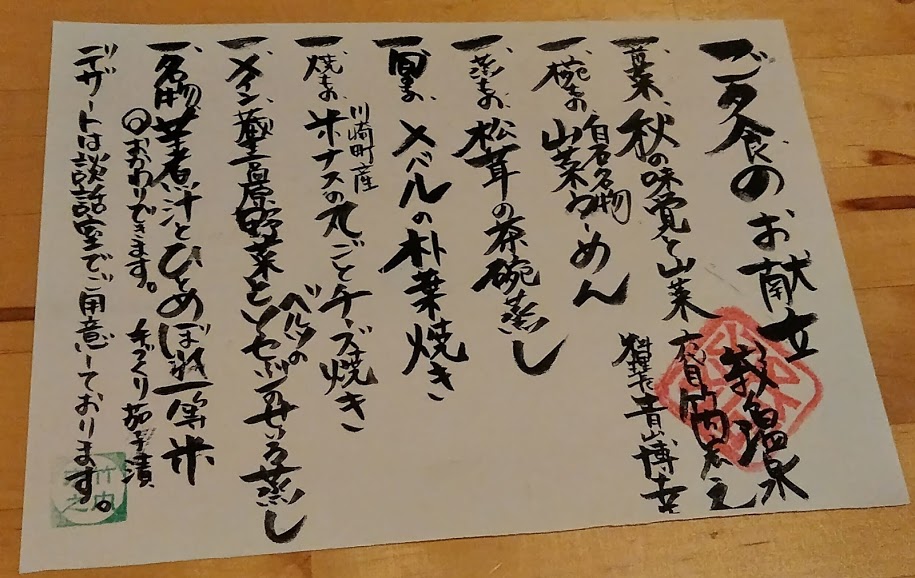 ご夕食のお献立
峩々温泉
六代目 竹内宏之
料理長 青山博幸
一、前菜、秋の味覚と山菜
一、椀もの、白石名物
山菜うーめん
一、蒸もの、松茸の茶碗蒸し
一、旬もの、メバルの朴葉焼き
一、焼もの、川崎町産
米ナスの丸ごとチーズ焼き
一、メイン、蔵王高原野菜と
ベルツのソーセージのせいろ蒸し
一、名物、芋煮汁とひとめぼれ一等米
おかわりできます。手づくり茄子漬
デザートは談話室でご用意しております。